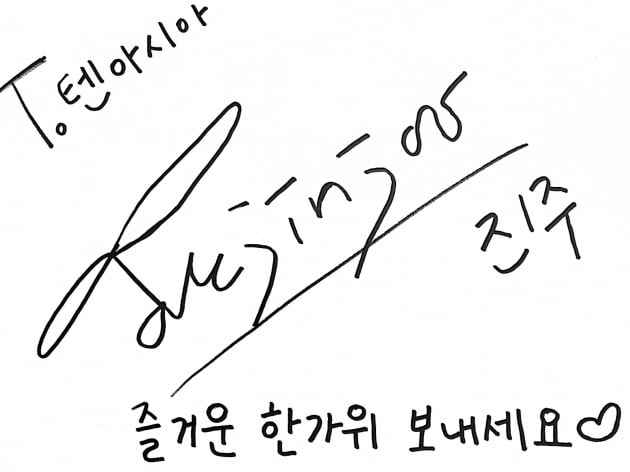 T. 텐아시아
진주
즐거운 한가위 보내세요♡